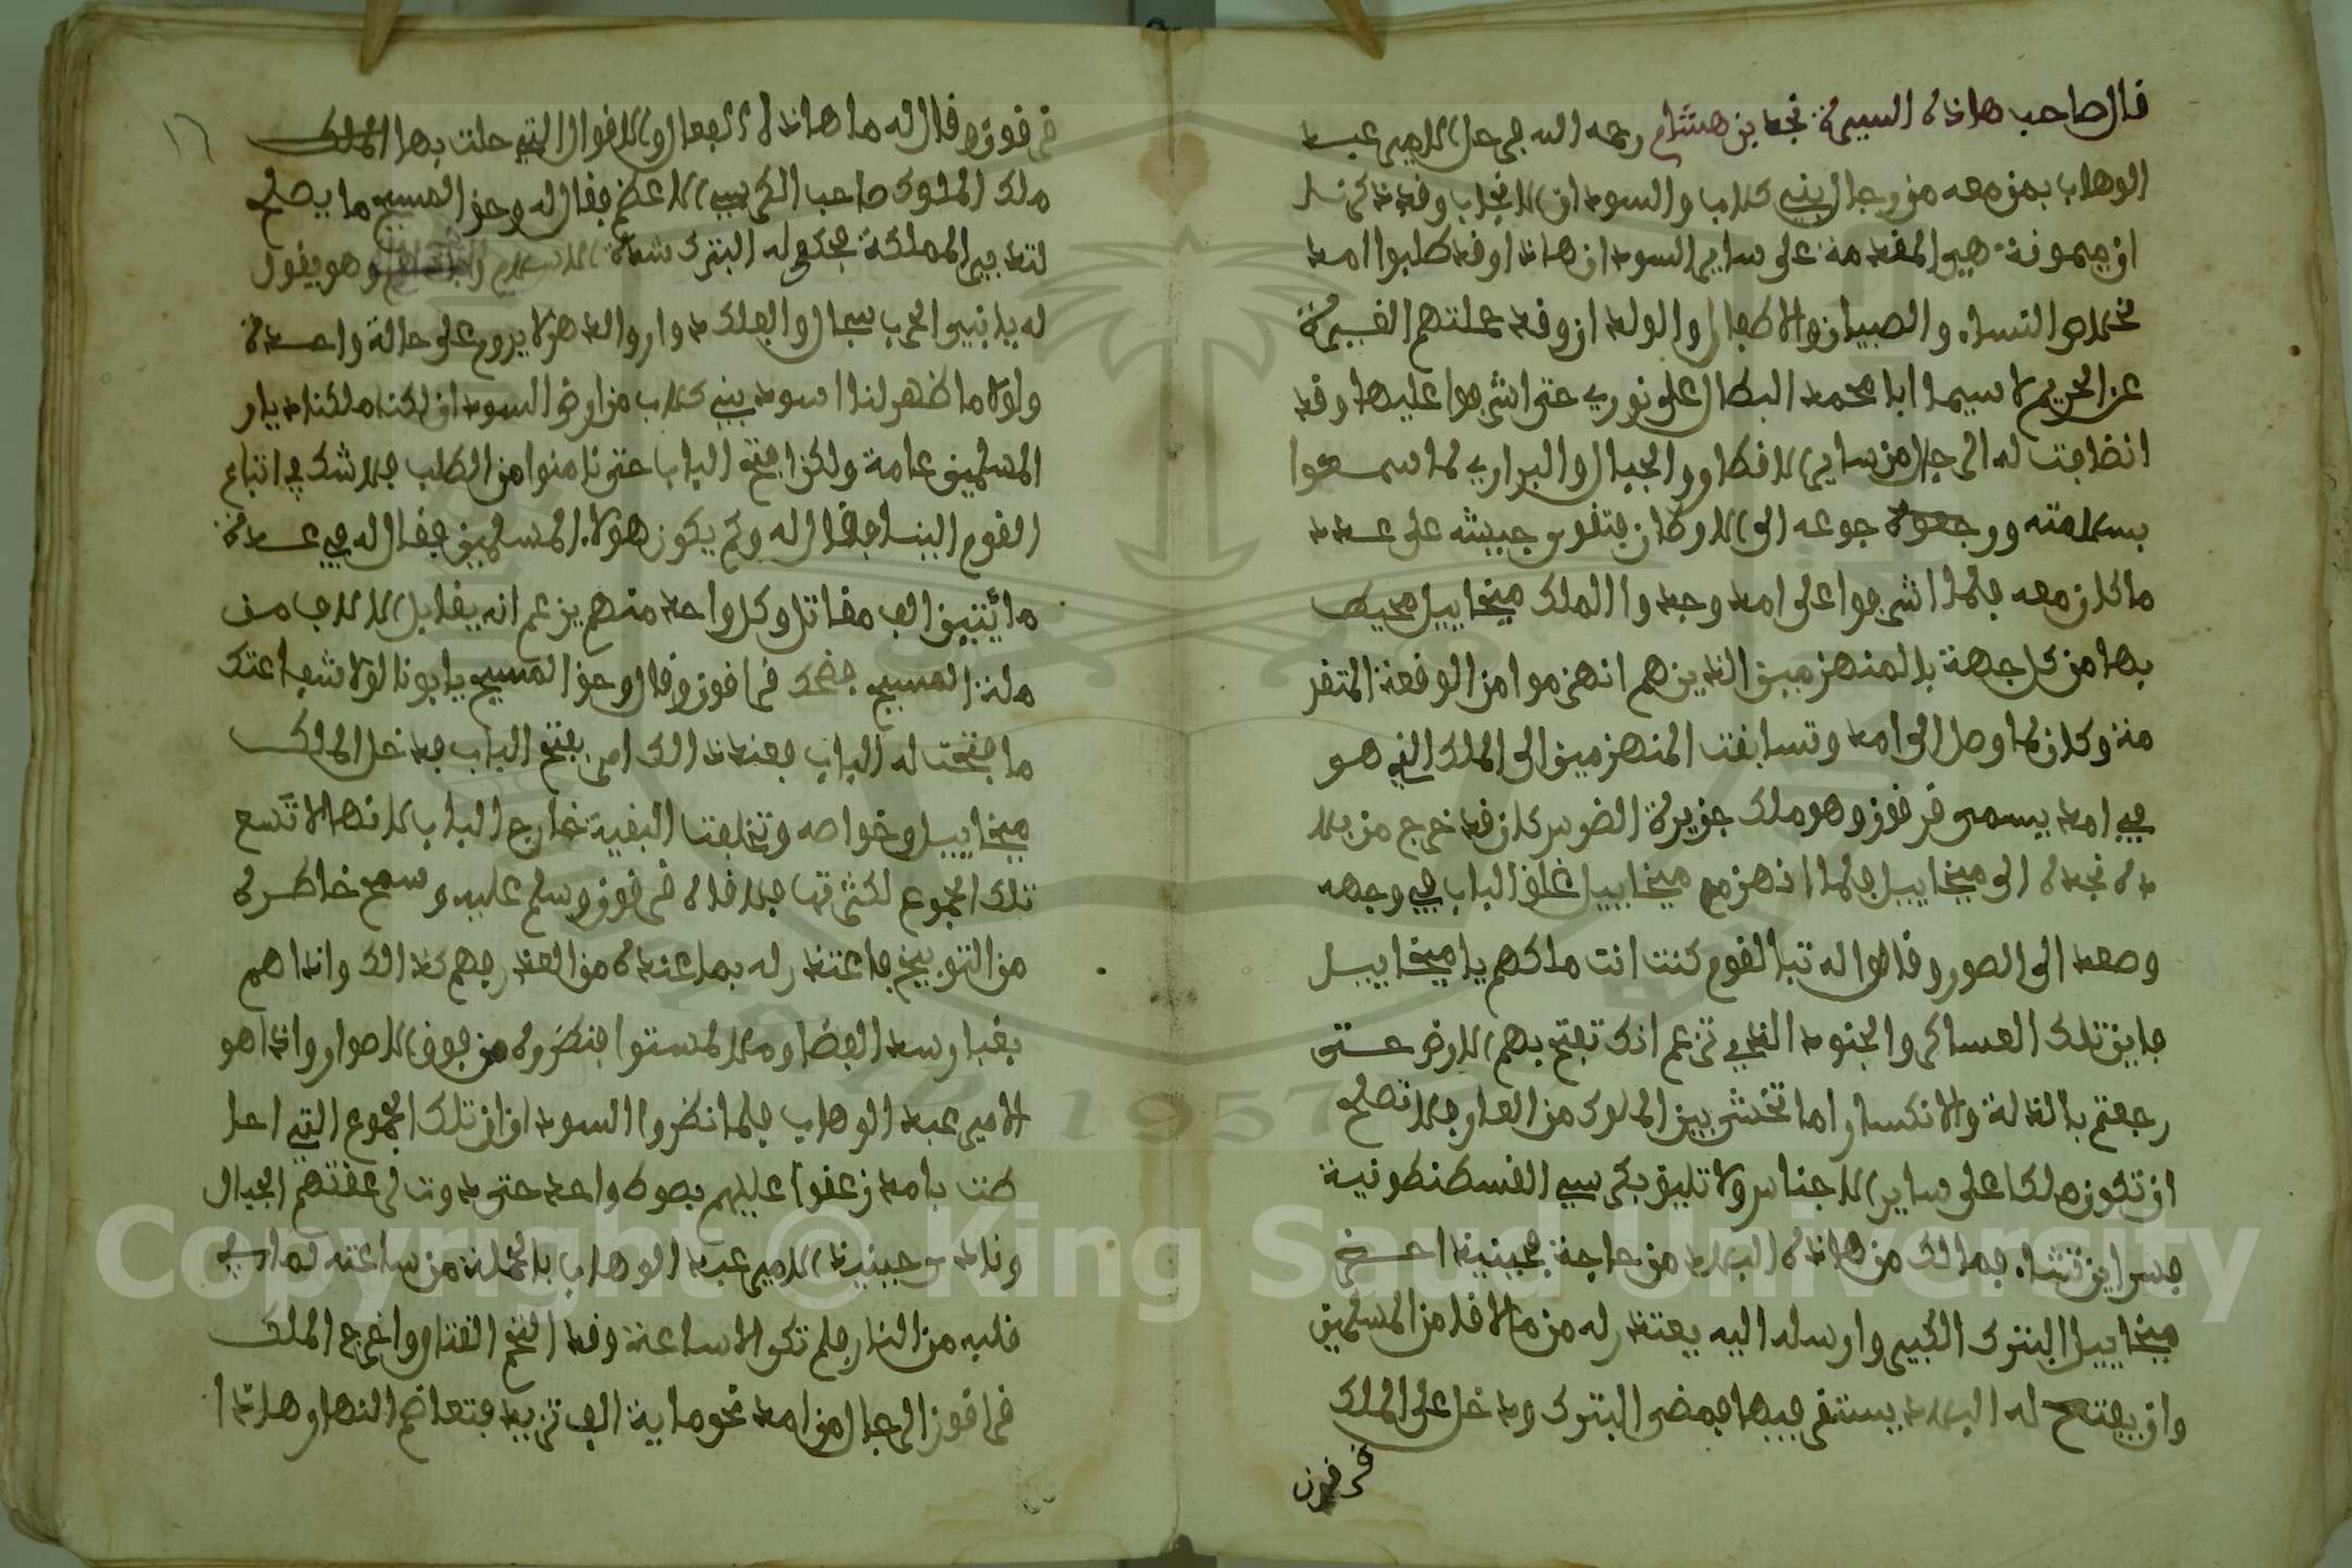 قال صاحب هاذه السيرة نجد بن هشام رحمه الله فرحل الامير عبد
الوهاب بمن معه من رجال بني كلاب والسودان الانجاب وقد ذكرنا
ان ميمونة هي المقدمة على ساير السودان هاذا وقد طلبوا امد
بخلاص النساء والصبيان والاطفال والولدان وقد حملتهم الغيرة
عن الحريم لا سيما ابا محمد البطال على نورى حتى اشرفوا عليها وقد
انضافت له الرجال من ساير الاقطار والجبال والبرارى لما سمعوا
بسلامته ورجوعه الى الاوطان فتقوى جيشه على عدد
ما كان معه فلما اشرفوا على امد وجدوا الملك ميخاييل محيط
بها من كل جهة بالمنهزمين الذين هم انهزموا من الوقعة المتقد
مة وكان لما وصل الى امد وتسابقت المنهزمين الى الملك الذي هو
في امد يسمى قرقون وهو ملك جزيرة الضوس كان قد خرج من بلا
ده نجدة الى ميخاييل فلما انهزم ميخاييل غلق الباب في وجهه
وصعد الى الصور وقالوا له تبا لقوم كنت انت ملكهم يا ميخاييل
فاين تلك العساكر والجنود الذي تزعم انك تفتح بهم الارض حتى
رجعتم بالذلة والانكسار اما تخشى بين الملوك من العار فلا تصلح
ان تكون ملكا على ساير الاجناس ولا تليق بكرسي القسطنطونية
فسر اين تشاء فما لك من هاذه البلاد من حاجة فحينيذ اخرج
ميخاييل البترك الكبير وارسله اليه يعتذر له من ما لاقا من المسلمين
وان يفتح له البلاد يستقر فيها فمضى البترك ودخل على الملك
قرقون
١٦
قرقون وقال له ما هاذه الفعال والاقوال التي حلت بها الملك
ملك الملوك صاحب الكرسي الاعظم فقال له وحق المسيح ما يصلح
لتدبير المملكة فحكى له البترك شدة الاسلام وهو يقول
له يا بني الحرب سجال والفلك دوار والدهر لا يدوم على حالة واحدة
ولولا ما ظهر لنا اسود بني كلاب من ارض السودان لكنا ملكنا ديار
المسلمين عامة ولكن افتح الباب حتى نامنوا من الطلب فلا شك في اتباع
القوم الينا فقال له وكم يكون هولاء المسلمين فقال له في عدة
مايتين الف مقاتل وكل واحد منهم يزعم انه يقابل الالاف من
ملة المسيح فضحك قرقون وقال وحق المسيح يا بونا لولا شفاعتك
ما فتحت له الباب فعند ذالك امر بفتح الباب فدخل الملك
ميخاييل وخواصه وتخلفت البقية خارج الباب لانها لا تسع
تلك الجموع لكثرتها فلاقاه قرقون وسلم عليه وسمح خاطره
من التوبيخ فاعتذر له بما عنده من العذر فهم كذالك واذا هم
بغبار سد الفضا وملا المستوا فنظروه من فوق الاصوار واذا هو
الامير عبد الوهاب فلما نظروا السودان ان تلك الجموع التي احا
طت بامد زعقوا عليهم بصوت واحد حتى دوت لزعقتهم الجبال
ونادى حينيذ الامير عبد الوهاب بالحملة من ساعته لما في
قلبه من النار فلم تكن الا ساعة وقد التحم القتال واخرج الملك
قرقون الرجال من امد نحو ماية الف تزيد فتعاضم النهار وهاذا